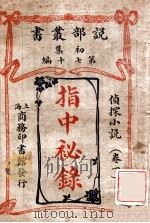 說部叢書
初集
第七十編
偵探小說
指中祕錄
上海
商務印書館發行